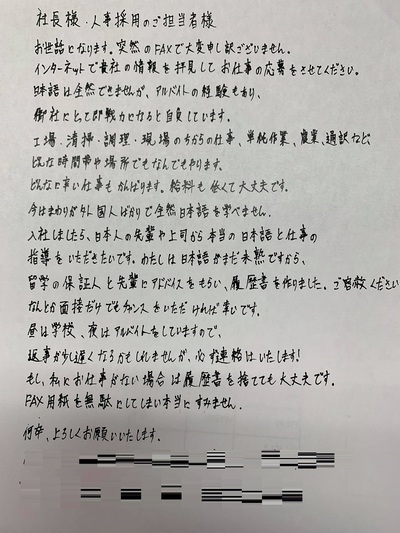 社長様・人事採用のご担当者様
お世話になります。突然のFAXで大変申し訳ございません。
インターネットで貴社の情報を拝見してお仕事の応募をさせてください。
日本語は全然できませんが、アルバイトの経験もあり、
御社にとって即戦力になると自負しています。
工場・清掃・調理・現場の力仕事、単純作業、農業、通訳など、
どんな時間帯や場所でもなんでもやります。
どんなに辛い仕事もがんばります。給料も低くて大丈夫です。
今はまわりが外国人ばかりで全然日本語を学べません。
入社しましたら、日本人の先輩や上司から本当の日本語と仕事の
指導をいただきたいです。わたしは日本語がまだ未熟ですから、
留学の保証人と先輩にアドバイスをもらい、履歴書を作りました。ご容赦ください
なんとか面接だけでもチャンスをいただければ幸いです。
昼は学校、夜はアルバイトをしていますので、
返事が少し遅くなるかもしれませんが、必ず連絡はいたします!
もし、私にお仕事がない場合は履歴書を捨てても大丈夫です。
FAX用紙を無駄にしてしまい本当にすみません。
何卒、よろしくお願いいたします。